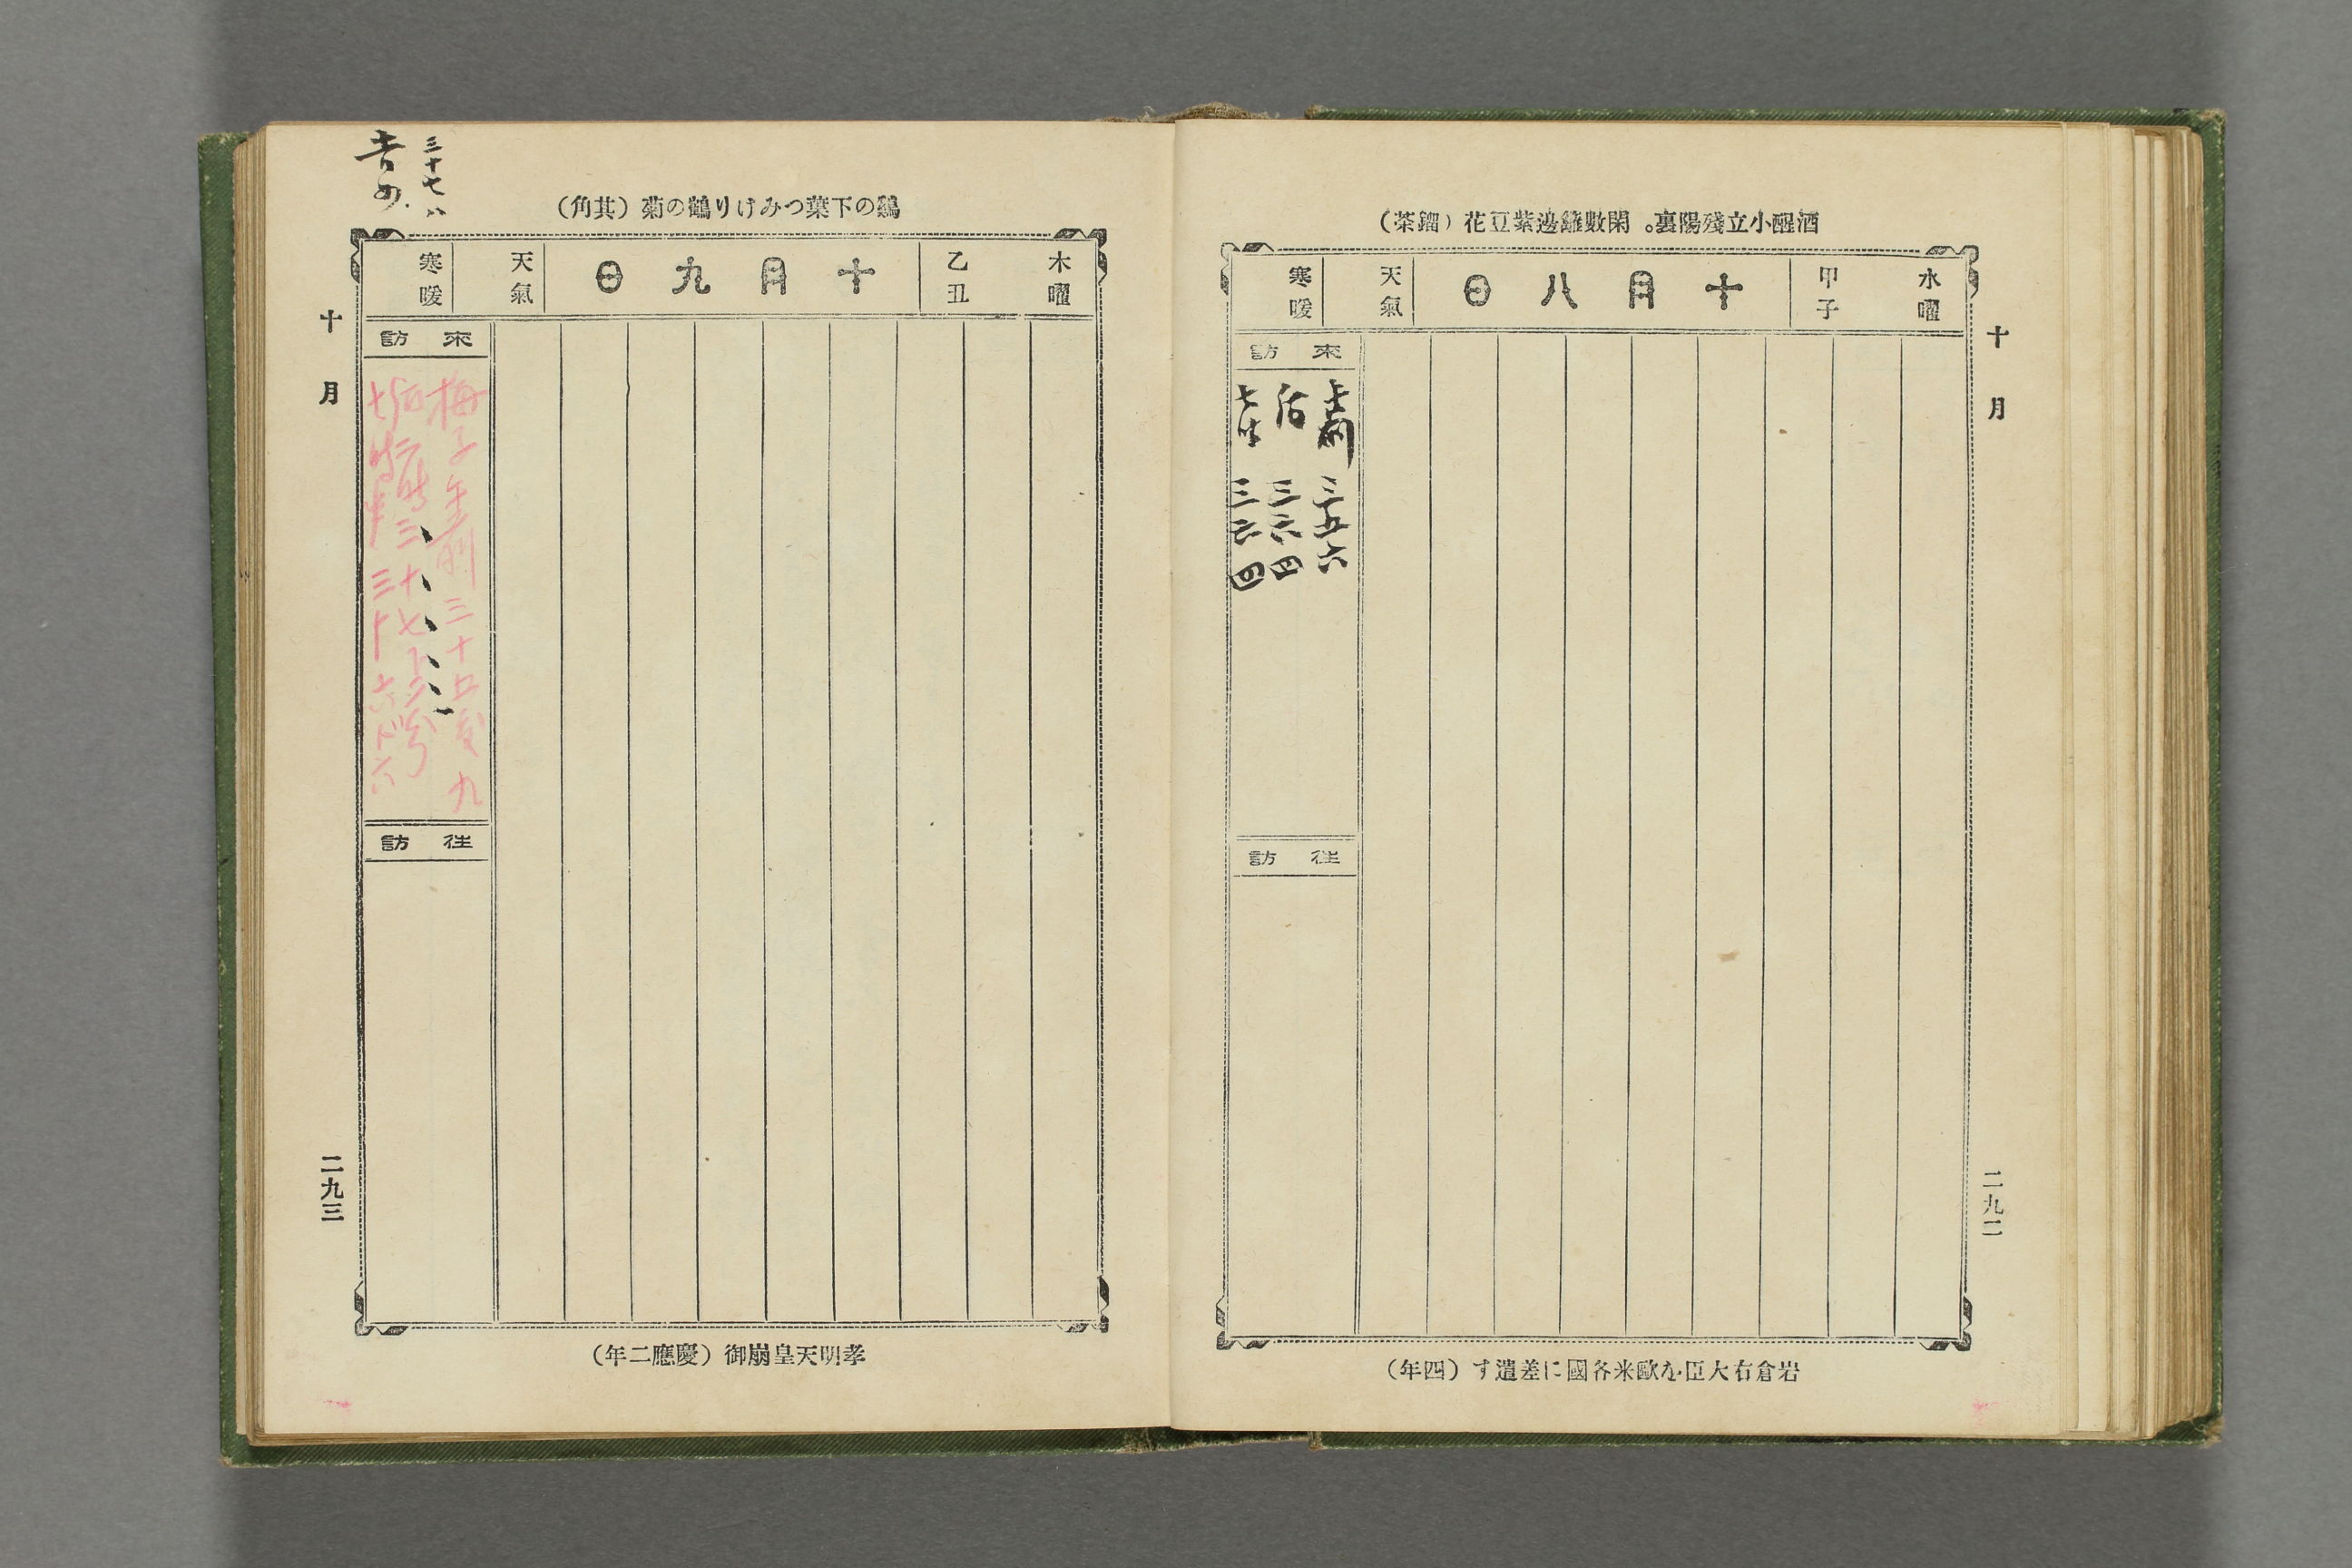 酒醒小立殘陽裏。閑數籬邊紫豆花(鑼茶)
水曜
甲子
十月八日
天氣
寒暖
來訪
午前 三五六
后 三六四
七時 三六四
往訪
岩倉右大臣を歐米各國に差遣す(四年)
十月
二九二
鷄の下葉つみけり鶴の菊(其角)
木曜
乙丑
十月九日
天氣
寒暖
三十七、八
來訪
梅子午前 三十五度九
后二時 三十七ド三分
七時半 三十六ド六
往訪
孝明天皇崩御(慶應二年)
十月
二九三